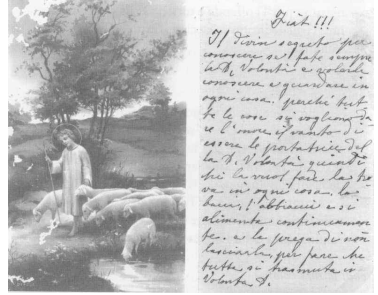 Fiat !!!
Il divin segreto per
conoscere se fate sempre
la D. Volontà è volerla
conoscere e guardare in
ogni cosa. perchè tut
te le cose si vogliono da
re l'onore, il vanto di
essere le portatrice del
la D. Volontà quindi
chi la vuol fare la tro
va in ogni cosa. la
bacia, l'abbraccia e si
alimenta continuamen
te. e la prega di non
lasciarla, per fare che
tutta si trasmuta in
Volontà D.